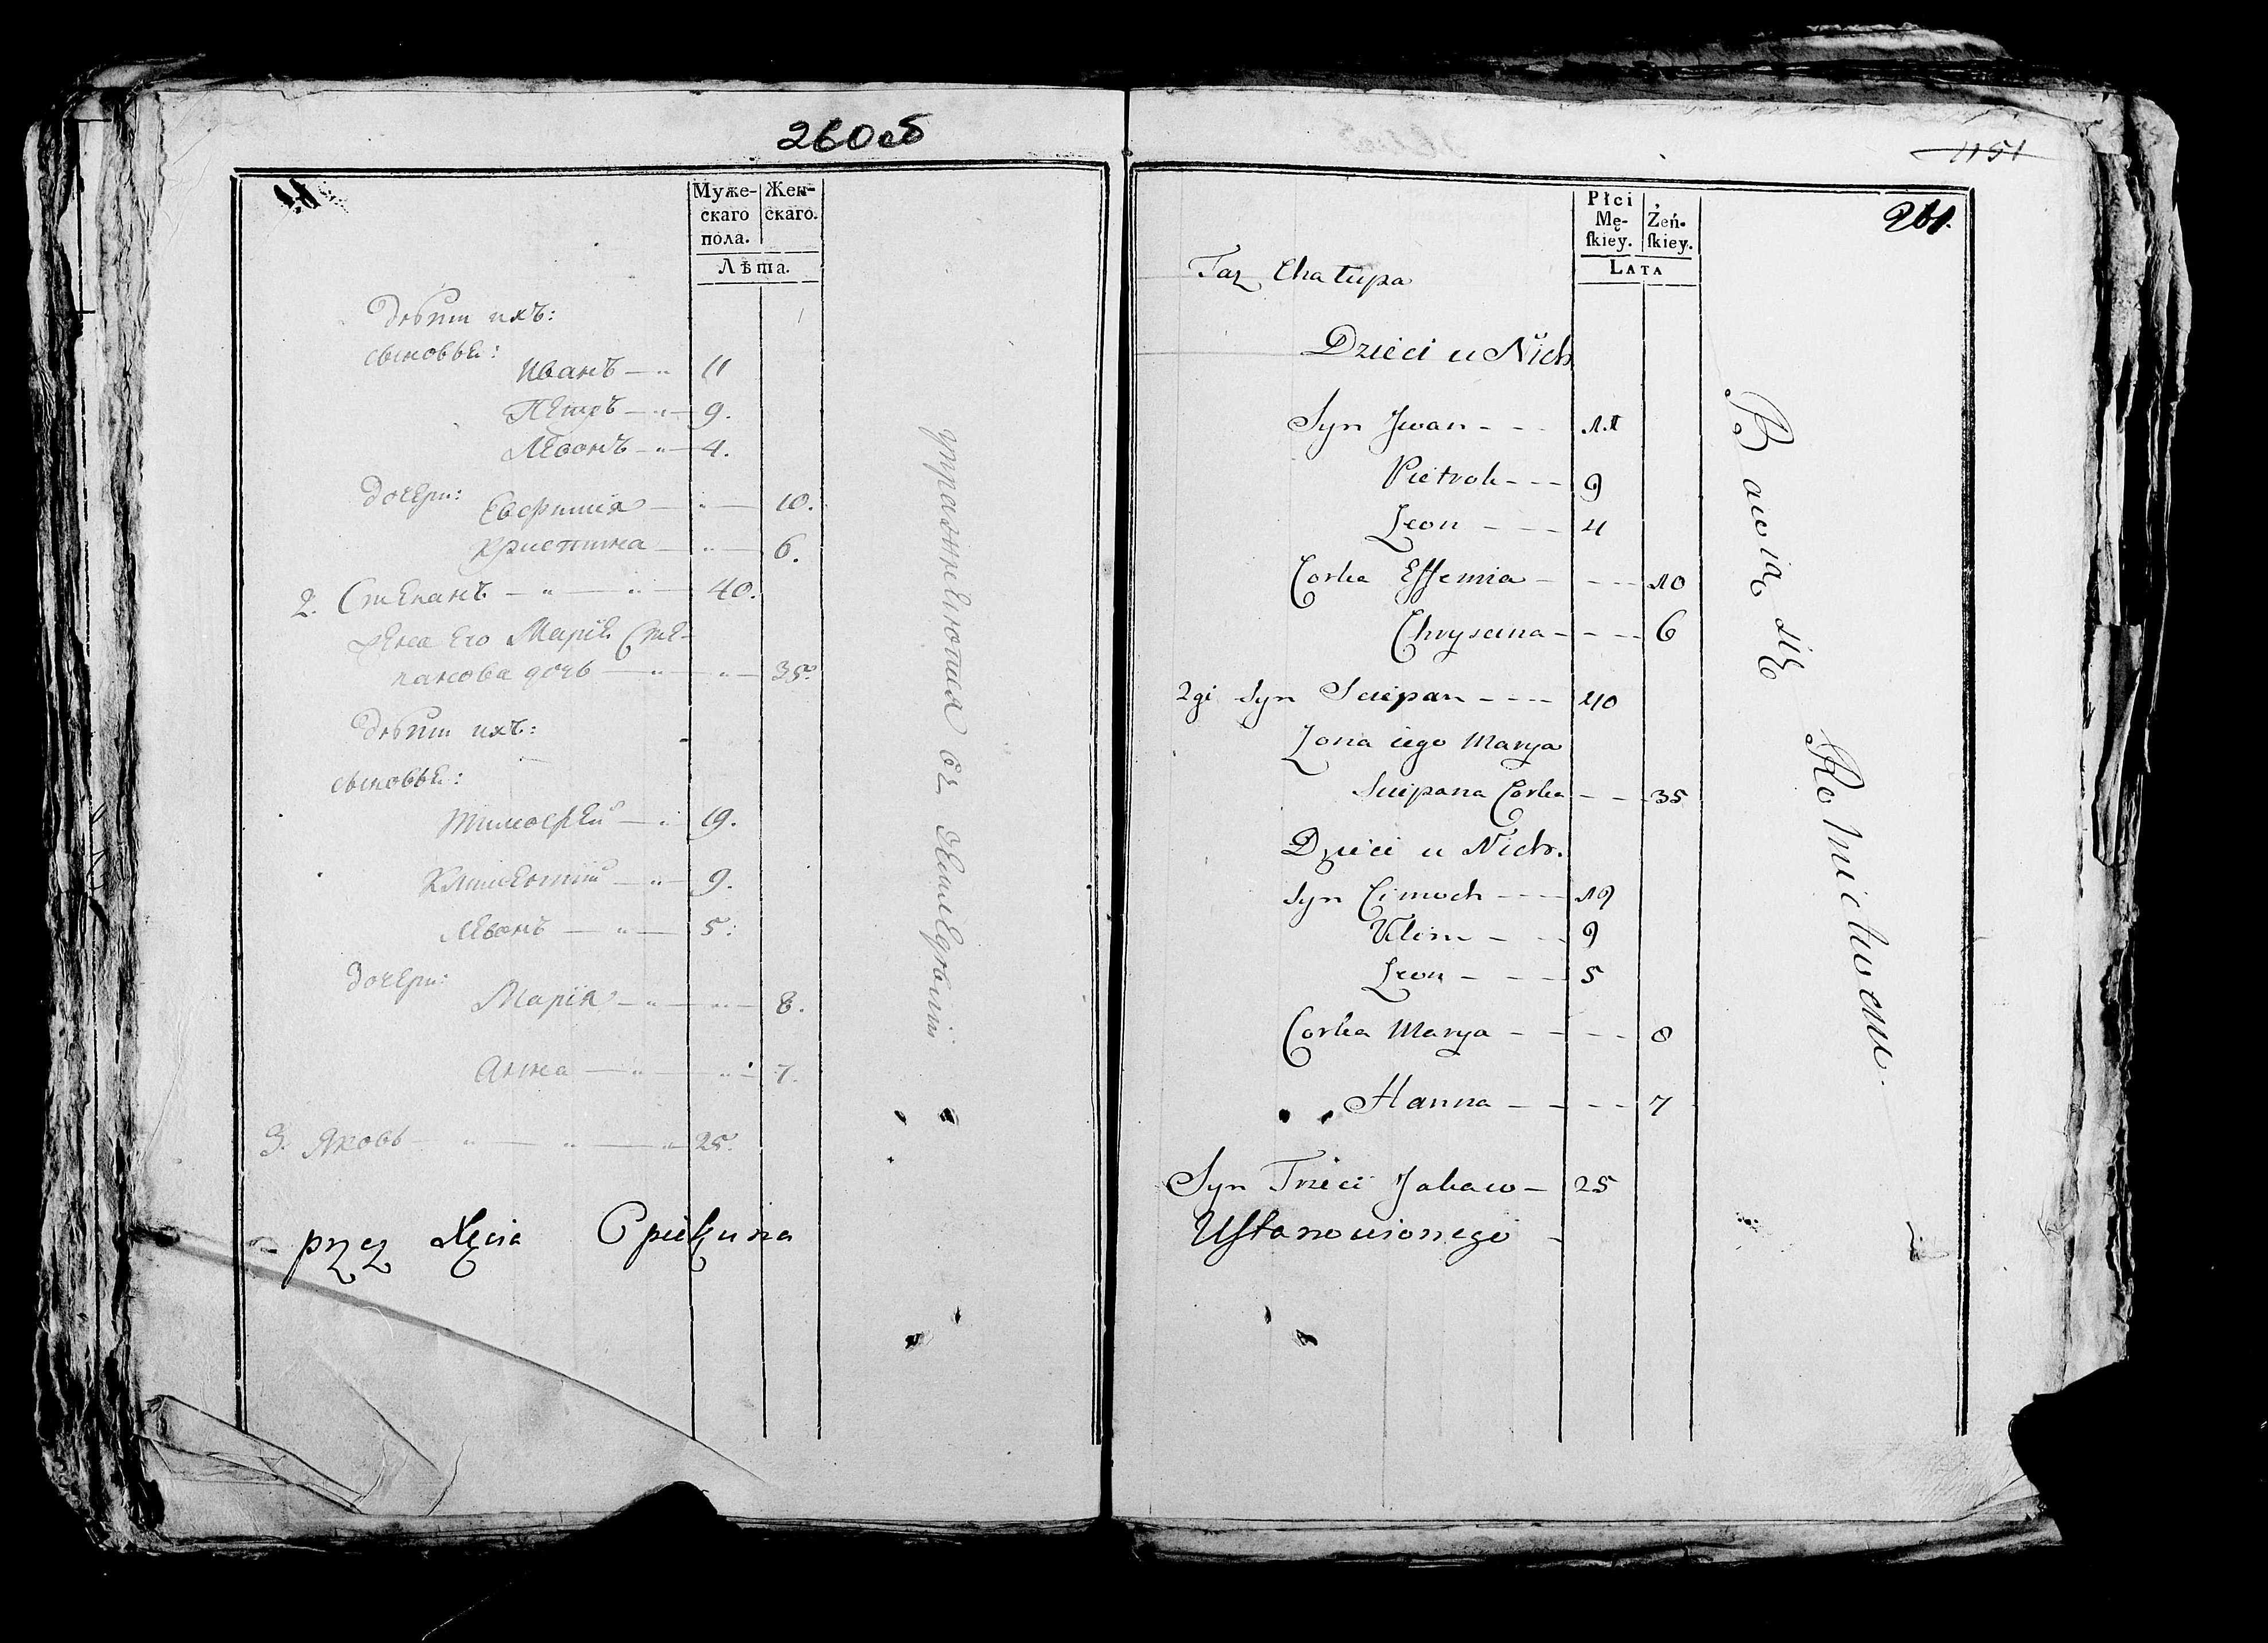 260об
Муже-
скаго
пола.
Жен-
скаго.
Лѣта.
Дѣти ихъ:
сыновья:
Иванъ — 11
Петръ — 9.
Левонъ — 4.
дочери:
Евфимия — 10.
Кристина — 6.
2. Степанъ — 40.
жена Его Марія Сте-
панова дочь — 35.
Дѣти ихъ:
сыновья:
Тимофей — 19.
Климентий — 9.
Левонъ — 5.
дочери:
Марія — 8.
Анна — 7.
3. Яковъ — 25.
przez Xięcia Opiekuna
упражняются въ земледѣлии
1151
261.
Płci
Mę-
ſkiey.
Żeń-
ſkiey.
LATA
Taz Chałupa
Dzieci u Nich
Syn Jwan - - - 11
Pietrok - - - 9
Leon - - - 4
Corka Effemia - - - - 10
Chryscina - - - - 6
2gi Syn Sciepan - - - - 40
Zona iego Marya
Sciepana Corka - - - 35
Dzieci u Nich.
Syn Cimoch - - - - 19
Klim - - - 9
Leon - - - 5
Corka Marya - - - - 8
Hanna - - - - 7
Syn Trzeci Jakow - 25
Uſtanowionego
Bawią się Rolnictwem.